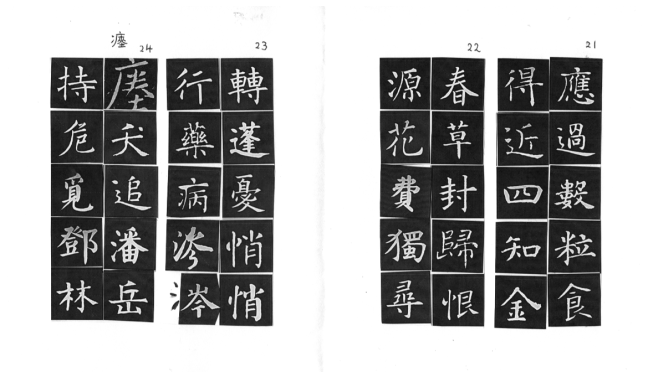 21
應過數粒食
得近四知金
22
春草封歸恨
源花費獨尋
23
轉蓬憂悄悄
行藥病涔涔
24
瘞
瘞夭追潘岳
持危覓鄧林